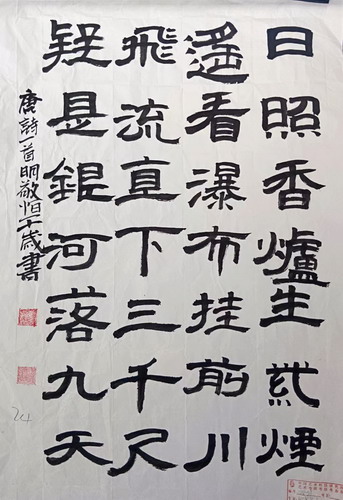 日照香爐生紫煙
遙看瀑布挂前川
飛流直下三千尺
疑是銀河落九天
唐詩一首明敬怛十歲書
24